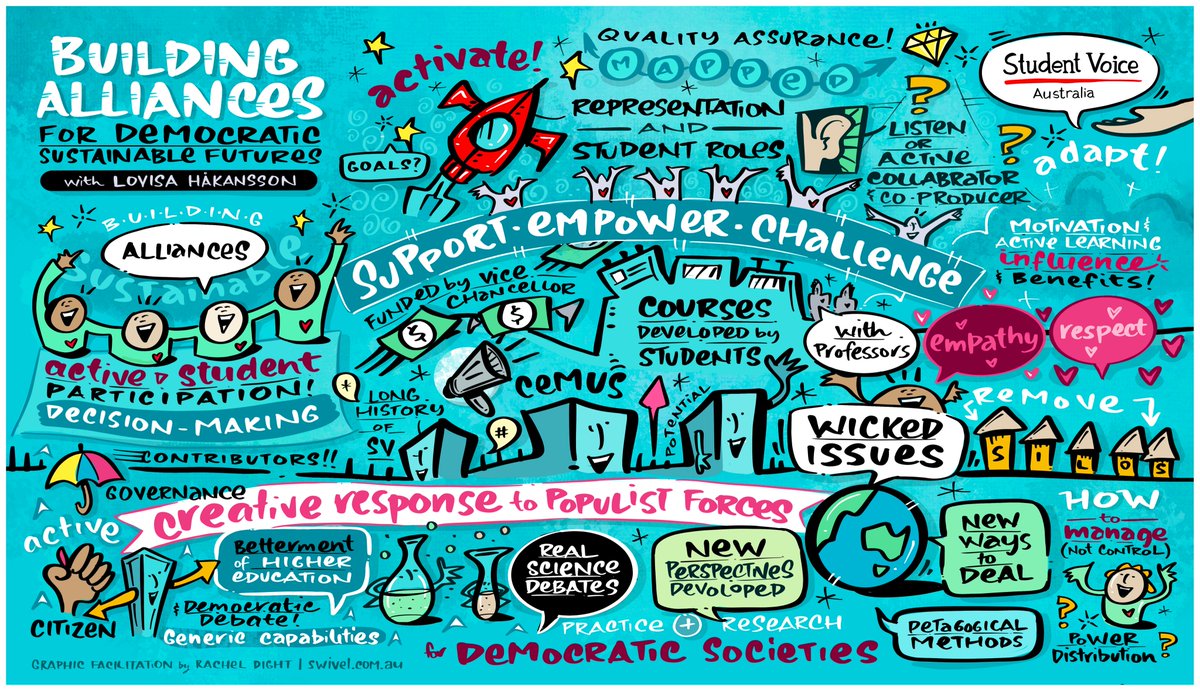 BUILDING
ALLIANCES
FOR DEMOCRATIC
SUSTAINABLE FUTURES
with LOVISA HÅKANSSON
activate!
GOALS?
QUALITY ASSURANCE!
MAPPED
REPRESENTATION
AND
STUDENT ROLES
?
LISTEN
OR
ACTIVE
COLLABRATOR
& CO-PRODUCER
Student Voice
Australia
?
adapt!
BUILDING
ALLIANCES
sustainable
active & student
PARTICIPATION!
DECISION-MAKING
CONTRIBUTORS!!
SUPPORT·EMPOWER·CHALLENGE
MOTIVATION &
ACTIVE LEARNING
influence
& Benefits!
FUNDED by VICE
CHANCELLOR
$
$
COURSES
DEVELOPED by
STUDENTS
with
Professors
empathy
respect
*
LONG
HISTORY
OF
SV
#
CEMUS
POTENTIAL
WICKED
ISSUES
REMOVE
SILOS
GOVERNANCE
creative response to POPULIST FORCES
active
CITIZEN
Betterment
of HIGHER
EDUCATION
& Democratic
Debate!
Generic capabilities
REAL
SCIENCE
DEBATES
NEW
PERSPECTIVES
DEVOLOPED
PRACTICE + RESEARCH
for DEMOCRATIC SOCIETIES
NEW
WAYS
to
DEAL
PETAGOGICAL
METHODS
HOW
to
manage
(NOT CONTROL)
?
POWER
DISTRIBUTION
?
GRAPHIC FACILITATION by RACHEL DIGHT | swivel.com.au